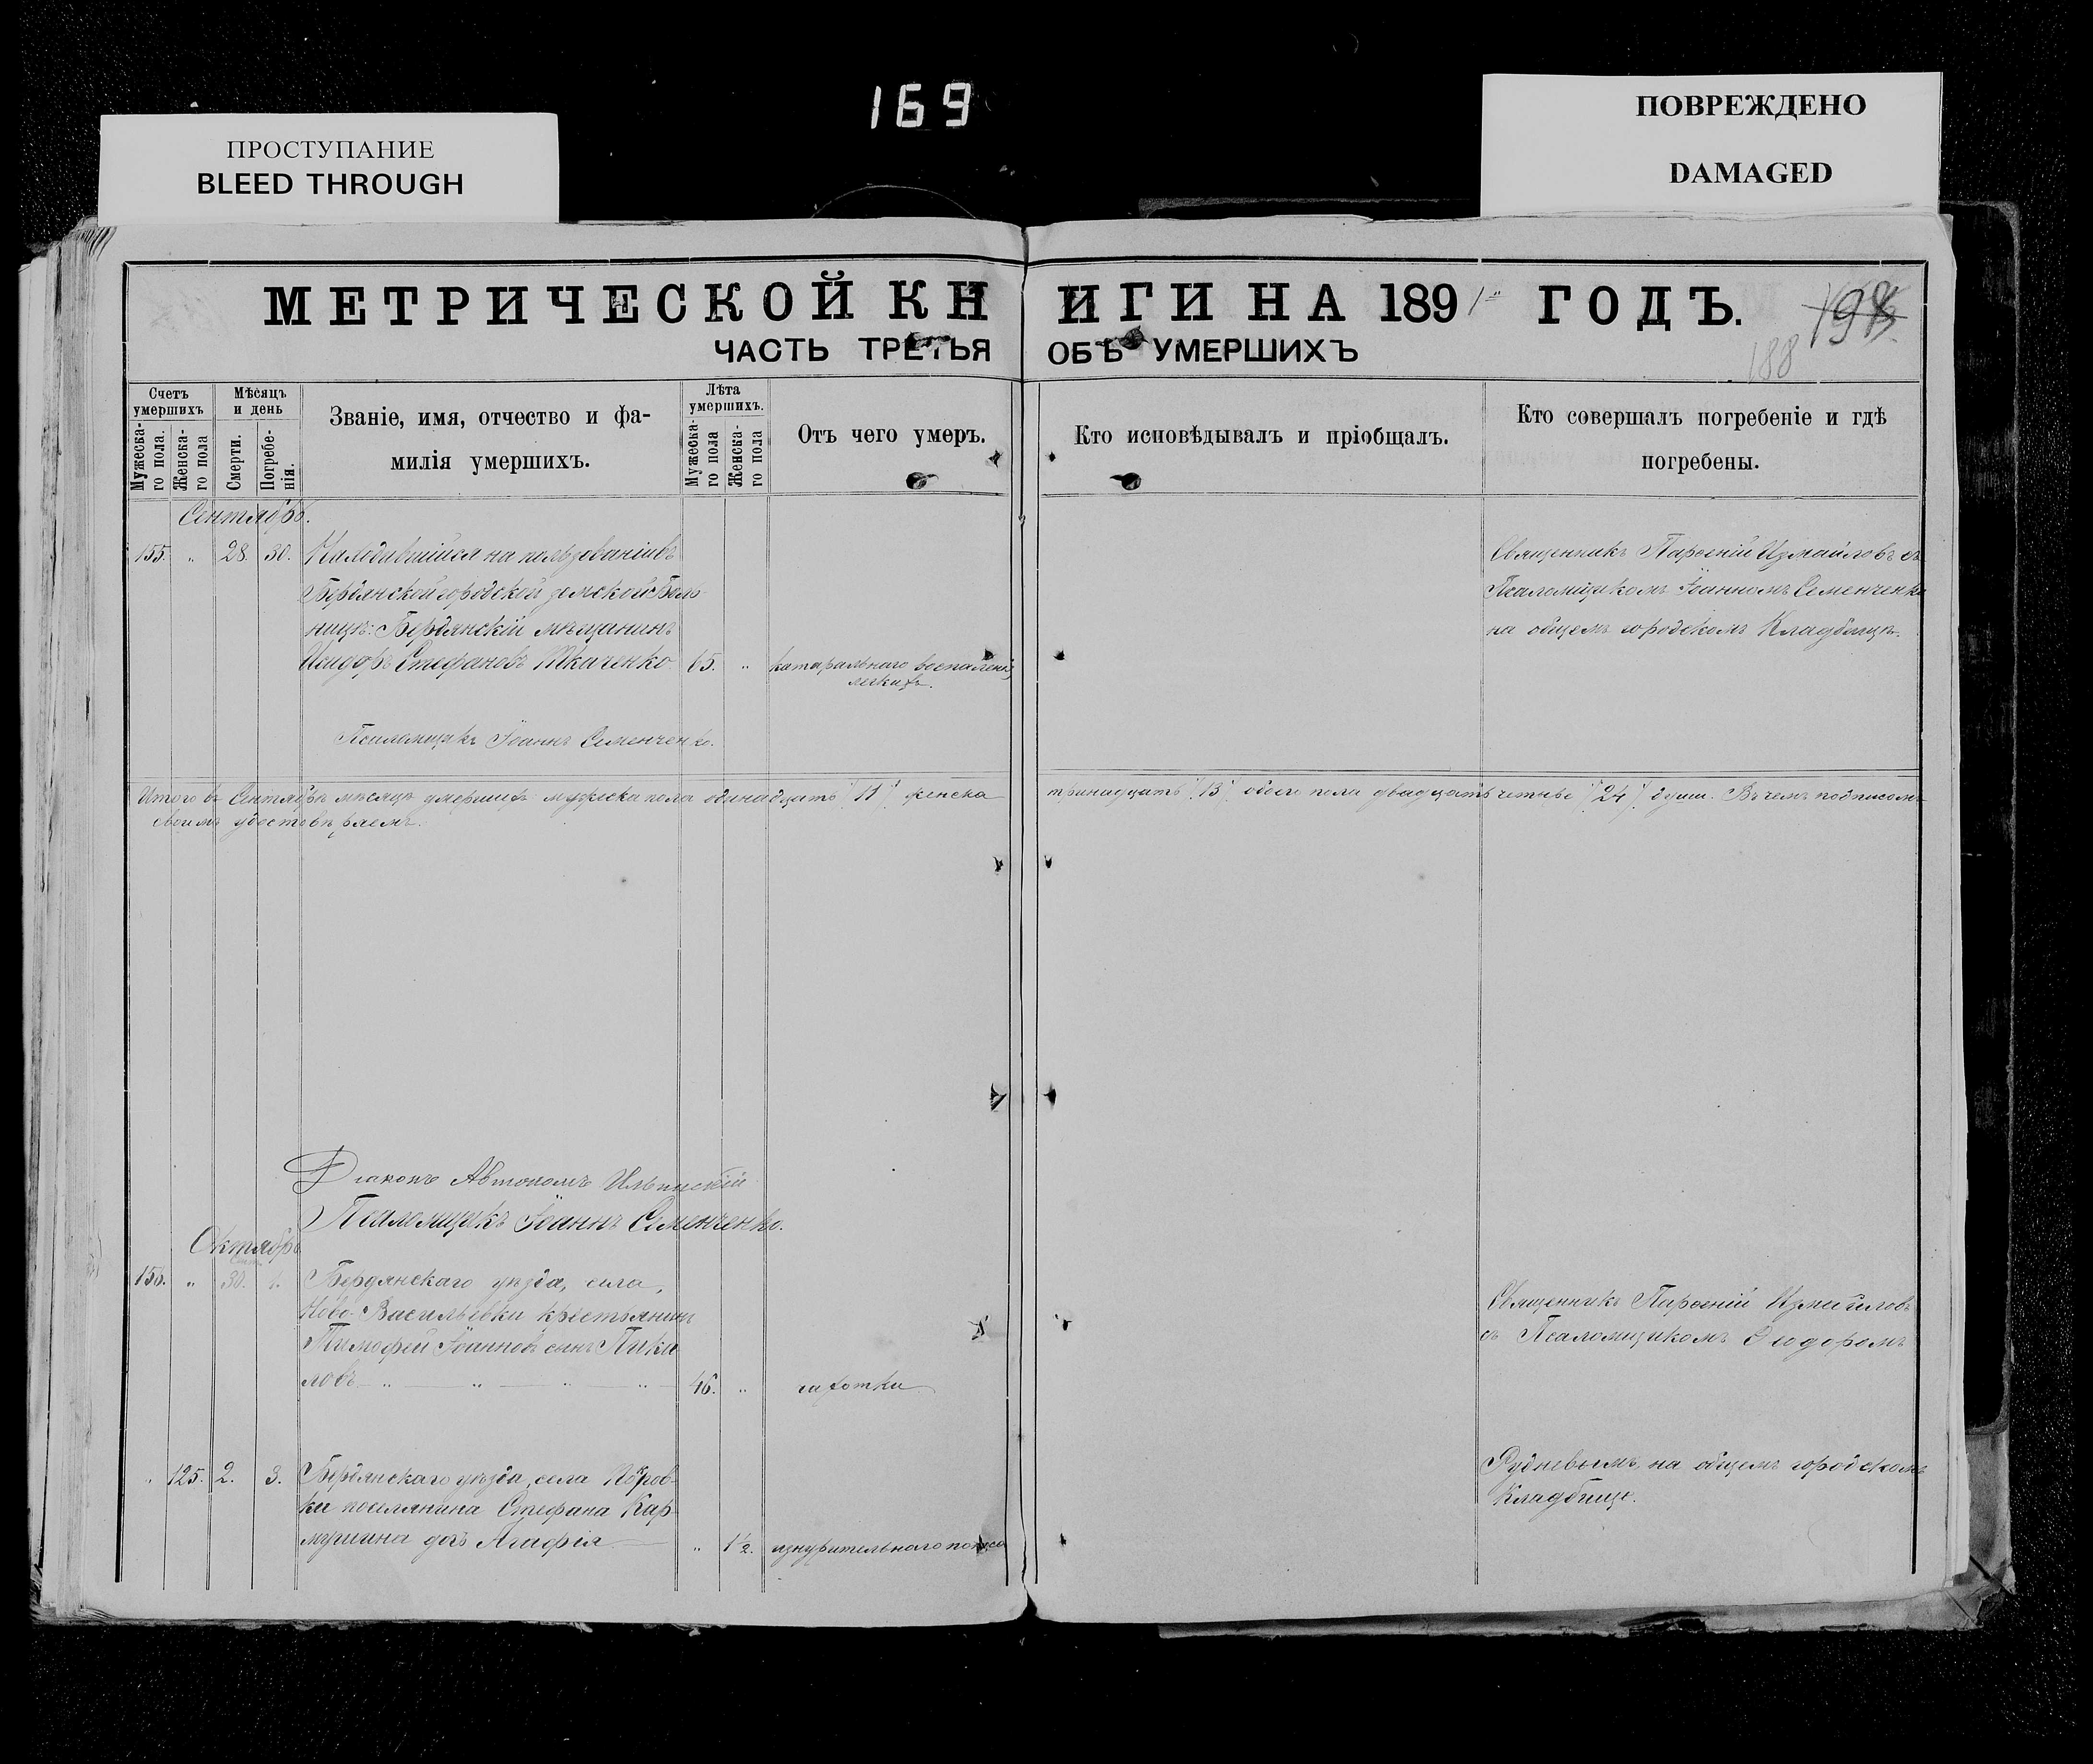 169
ПРОСТУПАНИЕ
BLEED THROUGH
ПОВРЕЖДЕНО
DAMAGED
МЕТРИЧЕСКОЙ КНИГИ НА 1891 ГОДЪ.
188
ЧАСТЬ ТРЕТЬЯ ОБЪ УМЕРШИХЪ
Счетъ умершихъ
Мужеска-го пола.
Женска-го пола
Мѣсяцъ и день
Смерти.
Погребе-нія.
Званіе, имя, отчество и фа-
милія умершихъ.
Лѣта умершихъ.
Мужеска-го пола
Женска-го пола
Отъ чего умеръ.
Кто исповѣдывалъ и пріобщалъ.
Кто совершалъ погребеніе и гдѣ
погребены.
Сентябрь.
155. „ 28. 30. Находившійся на пользованіи въ
Бердянской городской земской Боль-
ницѣ: Бердянскій мѣщанинъ
Исидоръ Стефановъ Ткаченко 65. „ катаральнаго воспаленія
легкихъ.
Священникъ Парѳеній Измайловъ съ
Псаломщикомъ Іоанномъ Семенченко
на общемъ городскомъ Кладбищѣ.
Псаломщикъ Іоаннъ Семенченко.
Итого въ Сентябрѣ мѣсяцѣ умершихъ мужеска пола одинадцать /11/ женска тринадцать /13/ обоего пола двадцать четыре /24/ душ. Въ чемъ подписомъ
своимъ удостовѣряемъ.
Діаконъ Автономъ Ильинскій
Псаломщикъ Іоаннъ Семенченко.
Октябрь
Сент.
156. „ 30. 1. Бердянскаго уѣзда, села,
Ново-Васильевки крестьянинъ
Тимофей Іоанновъ сынъ Пика
ловъ 46. „ чахотки
Священникъ Парѳеній Измайловъ
съ Псаломщикомъ Ѳеодоромъ
„ 125. 2. 3. Бердянскаго уѣзда, села Покров-
ки поселянина Стефана Кар-
мушина дочь Агафія „ 1½. изнурительнаго поноса
Рудневымъ, на общемъ городскомъ
Кладбищѣ.